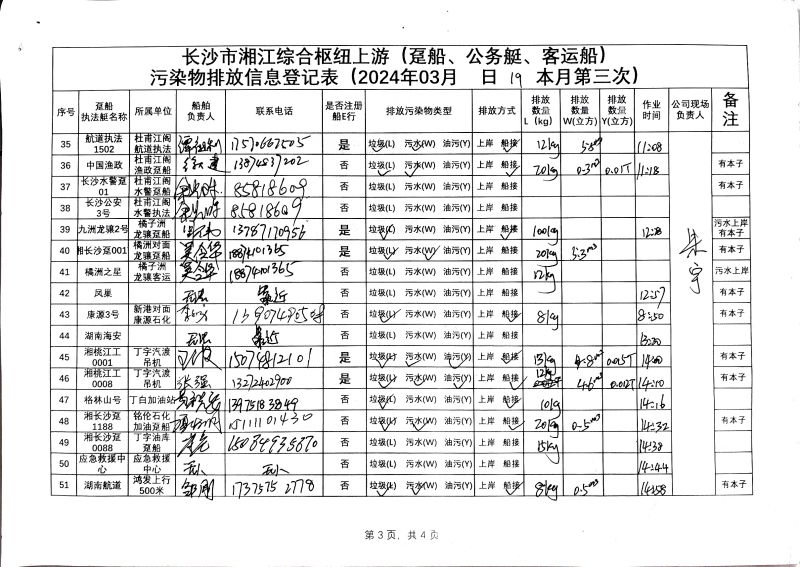 长沙市湘江综合枢纽上游（趸船、公务艇、客运船）
污染物排放信息登记表（2024年03月 日 19 本月第三次）
序号 趸船执法艇名称 所属单位 船舶负责人 联系电话 是否注册船E行 排放污染物类型 排放方式 排放数量L（kg） 排放数量W(立方) 排放数量Y(立方) 作业时间 公司现场负责人 备注
35 航道执法1502 杜甫江阁航道执法 是 垃圾(L) 污水(W) 油污(Y) 上岸 船接 12kg 11:08
36 中国渔政 杜甫江阁渔政趸船 13874837202 否 垃圾(L) 污水(W) 油污(Y) 上岸 船接 20kg 0.3m³ 0.01T 11:18 有本子
37 长沙水警趸01 杜甫江阁水警趸船 85818609 否 垃圾(L) 污水(W) 油污(Y) 上岸 船接 有本子
38 长沙公安3号 杜甫江阁水警执法 85818609 否 垃圾(L) 污水(W) 油污(Y) 上岸 船接
39 九洲龙骧2号 橘子洲龙骧趸船 13787170956 否 垃圾(L) 污水(W) 油污(Y) 上岸 船接 100kg 污水上岸有本子
40 湘长沙趸001 橘洲对面龙骧趸船 18874101365 是 垃圾(L) 污水(W) 油污(Y) 上岸 船接 20kg 有本子
41 橘洲之星 橘子洲龙骧客运 18874101365 否 垃圾(L) 污水(W) 油污(Y) 上岸 船接 12kg 污水上岸
42 凤巢 否 垃圾(L) 污水(W) 油污(Y) 上岸 船接 12:57
43 康源3号 新港对面康源石化 否 垃圾(L) 污水(W) 油污(Y) 上岸 船接 8kg 有本子
44 湖南海安 否 垃圾(L) 污水(W) 油污(Y) 上岸 船接
45 湘桃江工0001 丁字汽渡吊机 15079812101 是 垃圾(L) 污水(W) 油污(Y) 上岸 船接 13kg 4.8m³ 0.015T 14:00 有本子
46 湘桃江工0008 丁字汽渡吊机 张强 13272402900 是 垃圾(L) 污水(W) 油污(Y) 上岸 船接 12kg 4.6m³ 0.012T 14:10 有本子
47 格林山号 丁白加油站 13975183849 否 垃圾(L) 污水(W) 油污(Y) 上岸 船接 10kg 14:16
48 湘长沙趸1188 铭伦石化加油趸船 15111101430 是 垃圾(L) 污水(W) 油污(Y) 上岸 船接 20kg 0.5m³ 14:32 有本子
49 湘长沙趸0088 丁字油库趸船 15084935870 否 垃圾(L) 污水(W) 油污(Y) 上岸 船接 15kg 14:38
50 应急救援中心 应急救援中心 否 垃圾(L) 污水(W) 油污(Y) 上岸 船接 14:44
51 湖南航道 鸿发上行500米 邹刚 1737575 2778 否 垃圾(L) 污水(W) 油污(Y) 上岸 船接 8kg 0.5m³ 14:58 有本子
朱宇
第 3 页，共 4 页